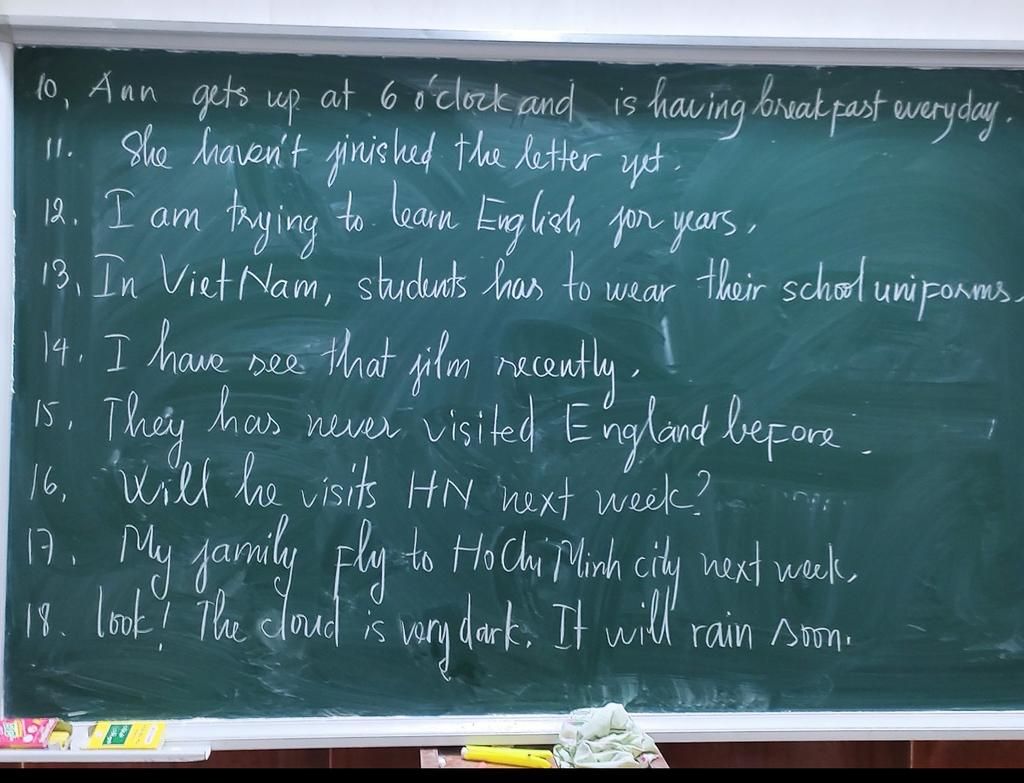 10, Ann gets up at 6 o'clock and is having breakfast everyday.
11. She haven't finished the letter yet.
12. I am trying to learn English for years.
13, In Viet Nam, students has to wear their school uniforms.
14. I have see that film recently.
15. They has never visited England before.
16, Will he visits HN next week?
17. My family fly to Ho Chi Minh city next week.
18. look! The cloud is very dark. It will rain soon.